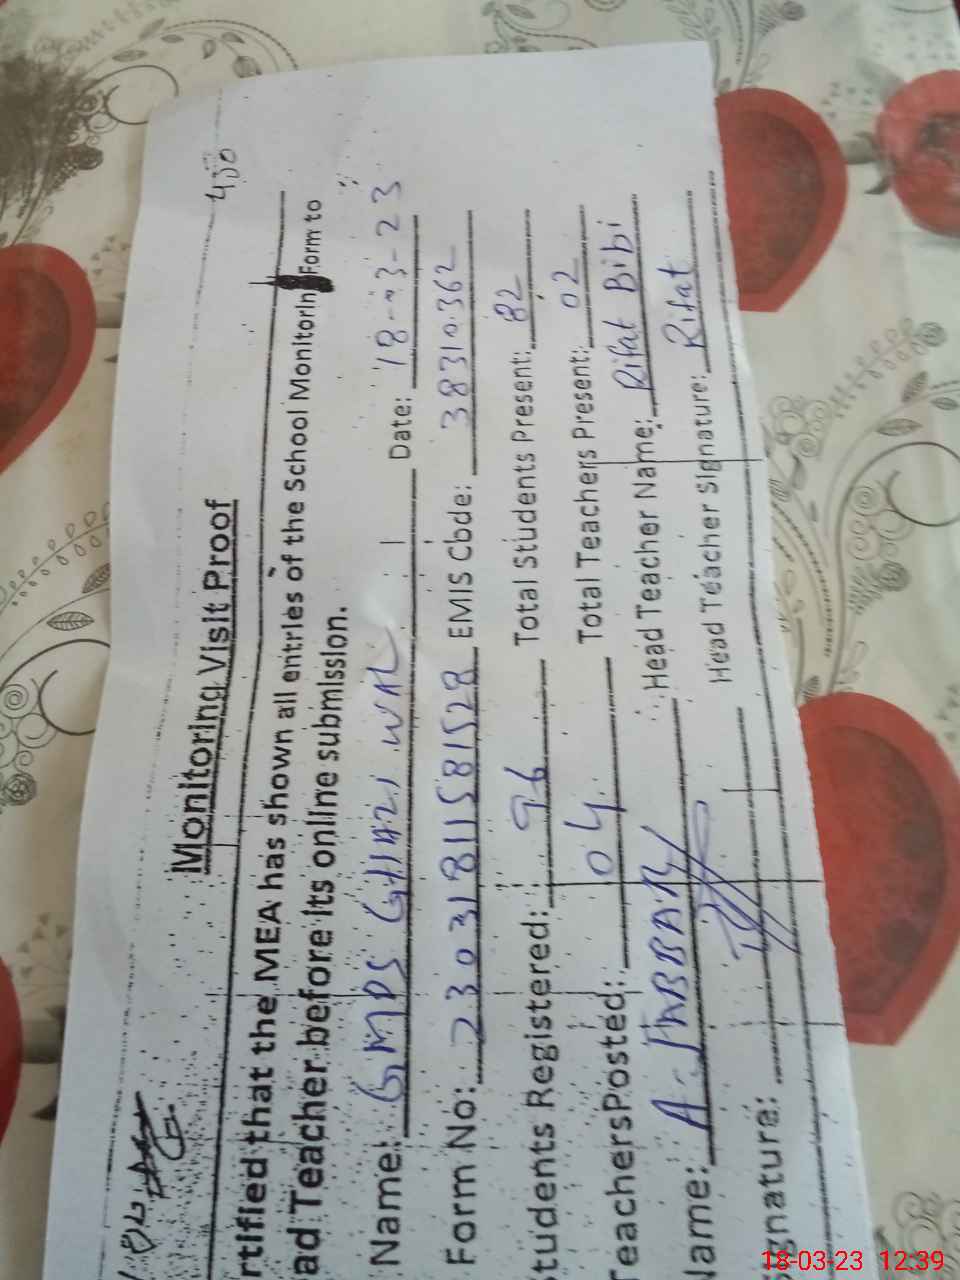 400
Monitoring Visit Proof
rtified that the MEA has shown all entries of the School Monitorin Form to
ad Teacher before its online submission.
Name: GMPS GHAZI WAL Date: 18-03-23
Form No: 23031811581528 EMIS Code: 38310362
tudents Registered: 96 Total Students Present: 82
TeachersPosted: 04 Total Teachers Present: 02
Name: A. JABBAR Head Teacher Name: Rifat Bibi
ignature: Head Teacher Signature: Rifat
18-03-23 12:39